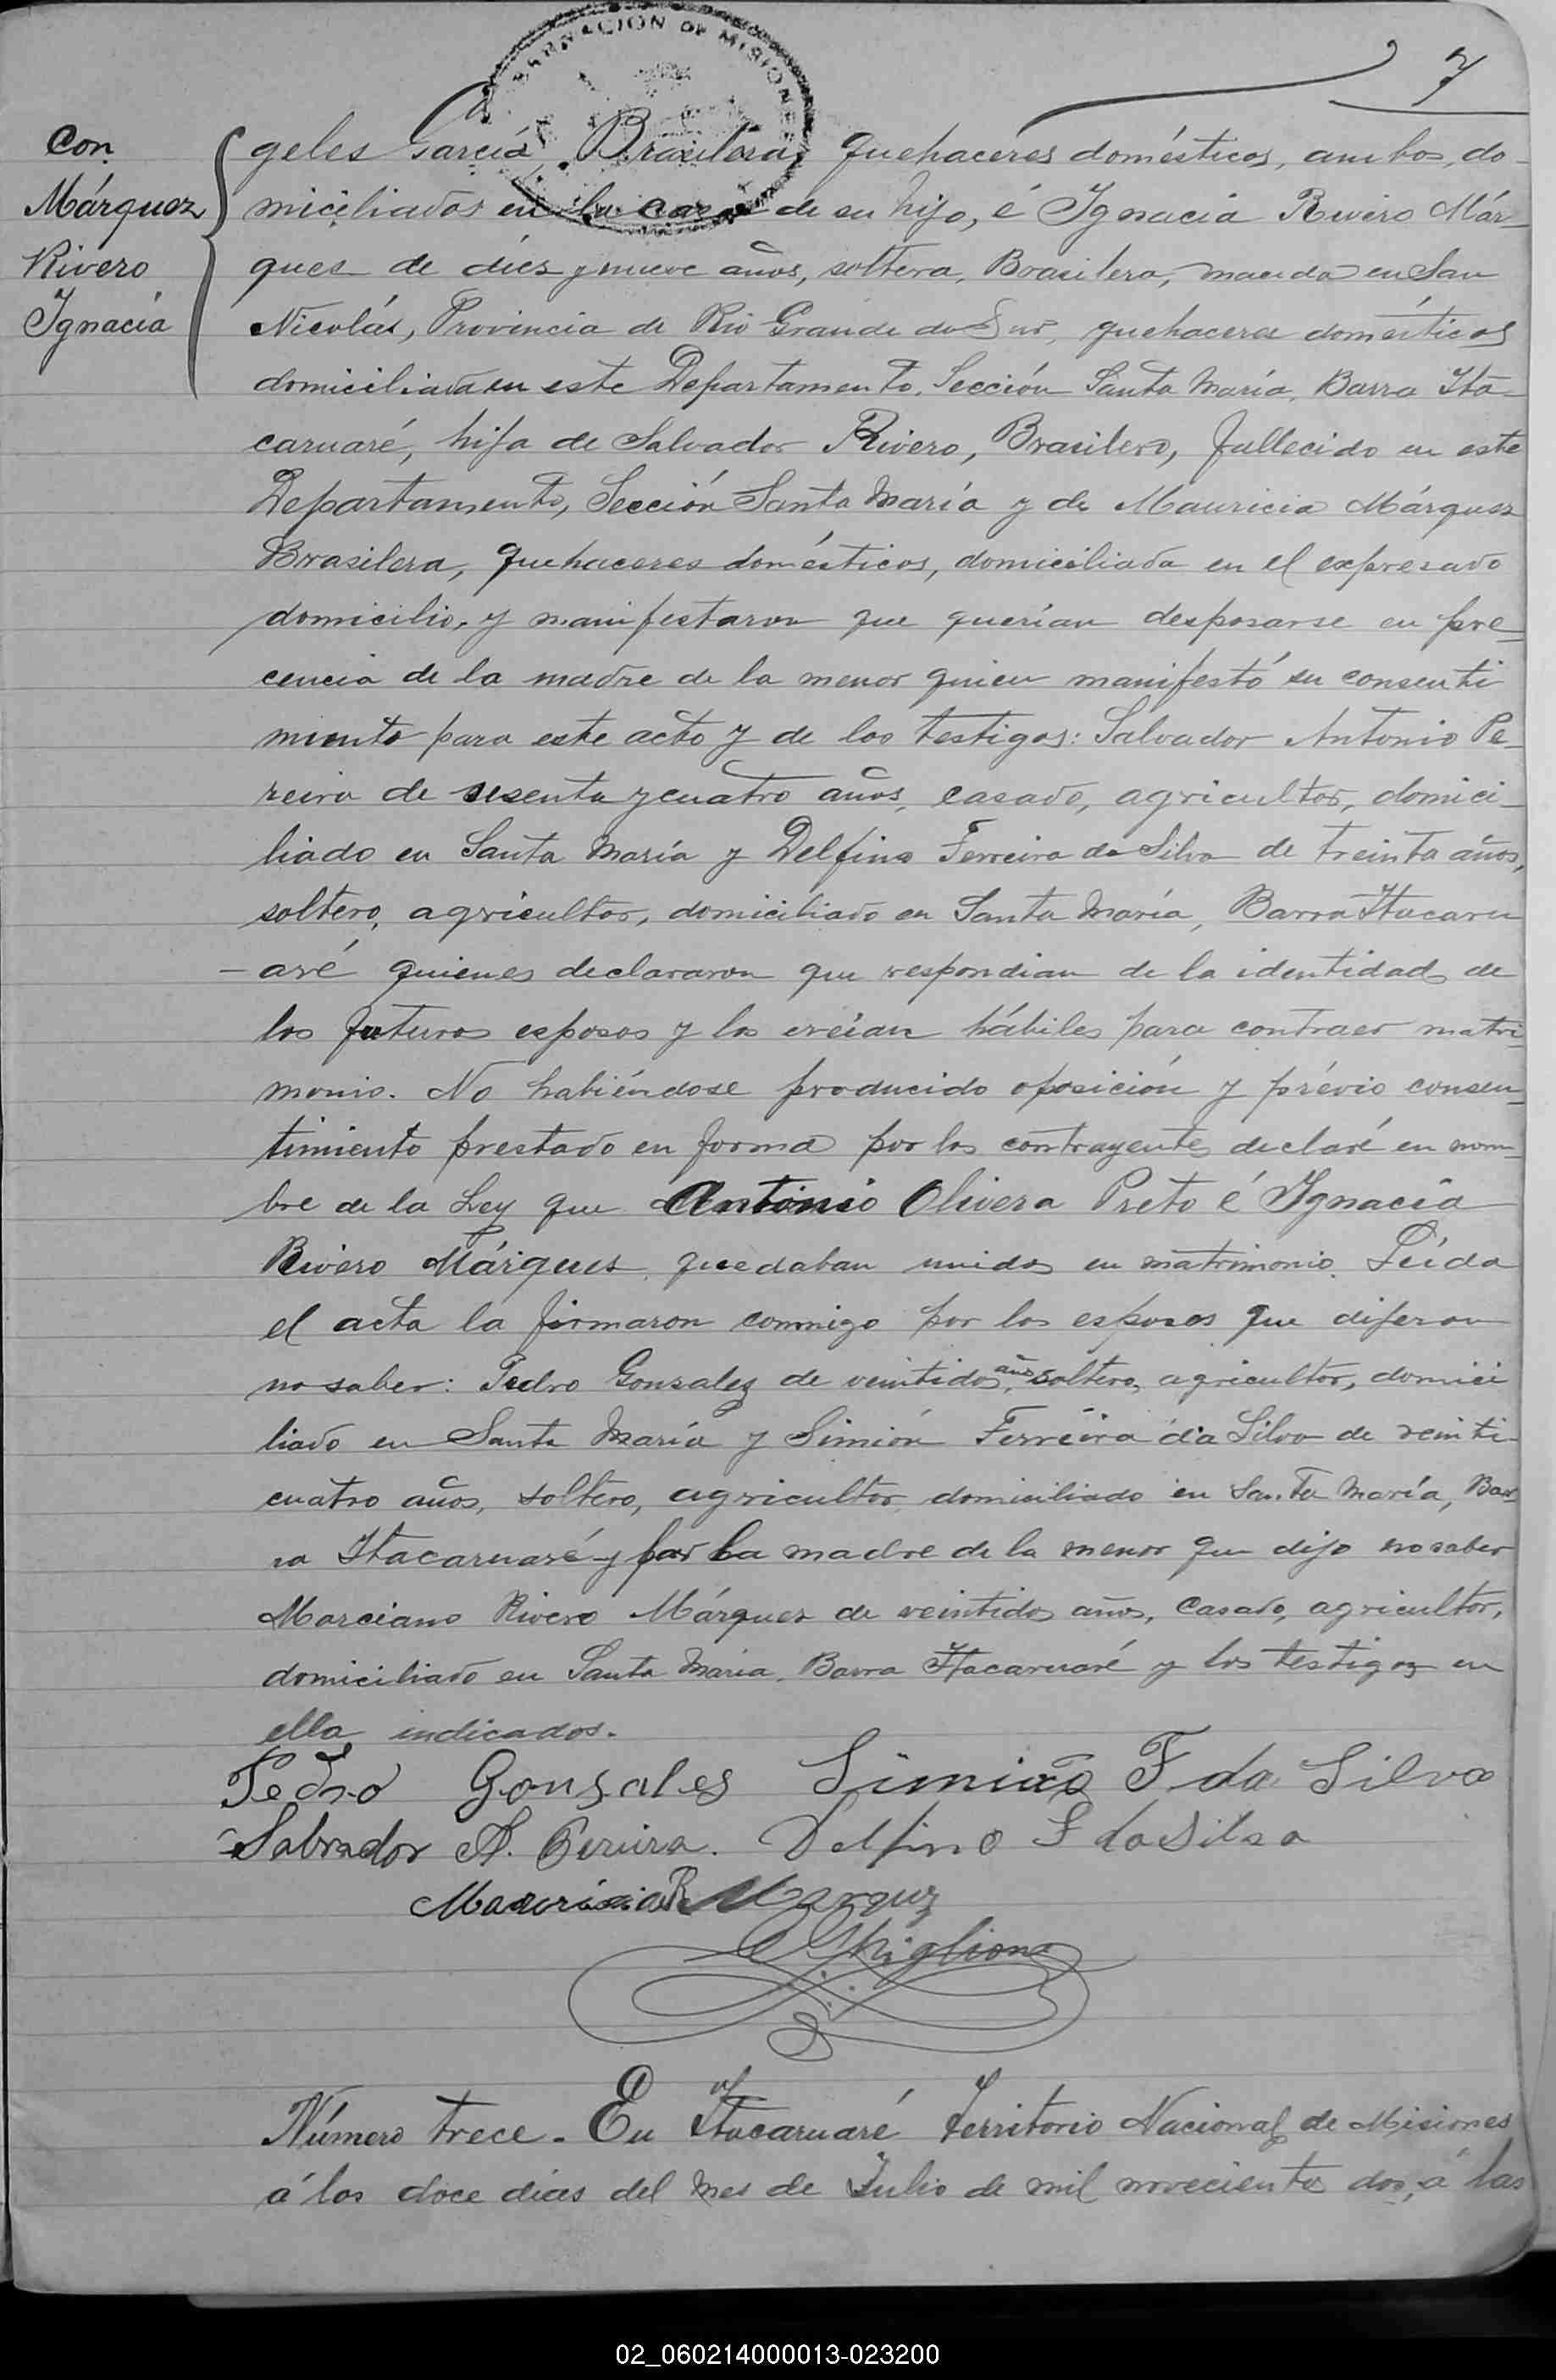 GOBERNACION DE MISIONES
7
Con
Márquez
Rivero
Ignacia
geles García, Brasilera, quehaceres domésticos, ambos do-
miciliados en la casa de su hijo, é Ignacia Rivero Már-
ques de diez y nueve años, soltera, Brasilera, nacida en San
Nicolás, Provincia de Rio Grande do Sur, quehaceres domésticos
domiciliada en este Departamento, Sección Santa María, Barra Ita-
caruaré, hija de Salvador Rivero, Brasilero, fallecido en este
Departamento, Sección Santa María y de Mauricia Márquez
Brasilera, quehaceres domésticos, domiciliada en el expresado
domicilio, y manifestaron que querían desposarse en pre-
cencia de la madre de la menor quien manifestó su consenti
miento para este acto y de los testigos: Salvador Antonio Pe-
reira de sesenta y cuatro años, casado, agricultor, domici-
liado en Santa María y Delfino Ferreira da Silva de treinta años,
soltero, agricultor, domiciliado en Santa María, Barra Itacaru
-aré quienes declararon que respondian de la identidad de
los futuros esposos y los creían hábiles para contraer matri-
monio. No habiéndose producido oposición y prévio consen-
timiento prestado en forma por los contrayentes declaré en nom-
bre de la Ley que Antonio Olivera Preto é Ignacia
Rivero Márques, quedaban unidos en matrimonio. Leída
el acta la firmaron conmigo por los esposos que dijeron
no saber: Pedro Gonzalez de veintidos años, soltero, agricultor, domici
liado en Santa María y Simión Ferreira da Silva de veinti-
cuatro años, soltero, agricultor domiciliado en Santa María, Bar-
ra Itacaruaré y por la madre de la menor que dijo no saber
Marciano Rivero Márquez de veintidos años, casado, agricultor,
domiciliado en Santa María, Barra Itacaruaré y los testigos en
ella indicados.
Pedro Gonsales Simião F da Silva
Salvador A. Pereira. Delfino F da Silva
R Marquez
Ghiglione
Número trece. En Itacaruaré Territorio Nacional de Misiones
á los doce días del mes de Julio de mil novecientos dos, á las
02_060214000013-023200